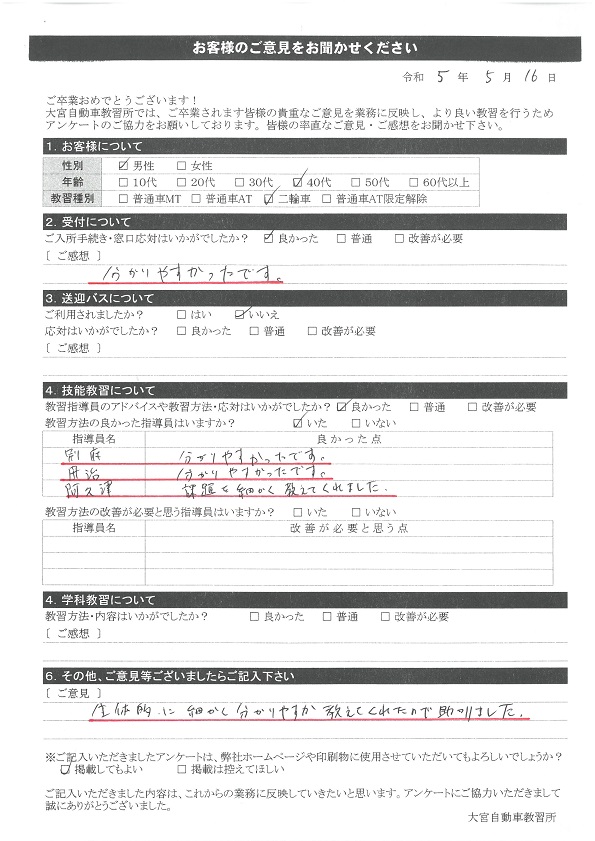 お客様のご意見をお聞かせください
令和 5 年 5 月 16 日
ご卒業おめでとうございます！
大宮自動車教習所では、ご卒業されます皆様の貴重なご意見を業務に反映し、より良い教習を行うため
アンケートのご協力をお願いしております。皆様の率直なご意見・ご感想をお聞かせ下さい。
1. お客様について
性別 ☑ 男性 □ 女性
年齢 □ 10代 □ 20代 □ 30代 ☑ 40代 □ 50代 □ 60代以上
教習種別 □ 普通車MT □ 普通車AT ☑ 二輪車 □ 普通車AT限定解除
2. 受付について
ご入所手続き・窓口応対はいかがでしたか？ ☑ 良かった □ 普通 □ 改善が必要
［ ご感想 ］
分かりやすかったです。
3. 送迎バスについて
ご利用されましたか？ □ はい ☑ いいえ
応対はいかがでしたか？ □ 良かった □ 普通 □ 改善が必要
［ ご感想 ］
4. 技能教習について
教習指導員のアドバイスや教習方法・応対はいかがでしたか？ ☑ 良かった □ 普通 □ 改善が必要
教習方法の良かった指導員はいますか？ ☑ いた □ いない
指導員名 良かった点
別府 分かりやすかったです。
丹治 分かりやすかったです。
阿久津 課題を細かく教えてくれました.
教習方法の改善が必要と思う指導員はいますか？ □ いた □ いない
指導員名 改善が必要と思う点
4. 学科教習について
教習方法・内容はいかがでしたか？ □ 良かった □ 普通 □ 改善が必要
［ ご感想 ］
6. その他、ご意見等ございましたらご記入下さい
［ ご意見 ］
全体的に細かく分かりやすか教えてくれたので助かりました.
※ご記入いただきましたアンケートは、弊社ホームページや印刷物に使用させていただいてもよろしいでしょうか？
☑ 掲載してもよい □ 掲載は控えてほしい
ご記入いただきました内容は、これからの業務に反映していきたいと思います。アンケートにご協力いただきまして
誠にありがとうございました。
大宮自動車教習所